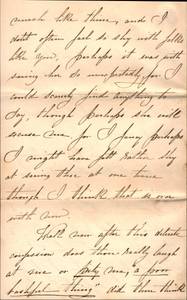 much like thine, and I
don't often feel so shy with folks
like you, perhaps it was with
seeing her so unexpectedly, for I
could scarcely find anything to
say, though perhaps she will
excuse me for I fancy perhaps
I might have felt rather shy
at seeing thee at one time
though I think that is over
with now.
Well now after this delicate
confession does thee really laugh
at me or pity me, "a poor
bashful thing" did thee think